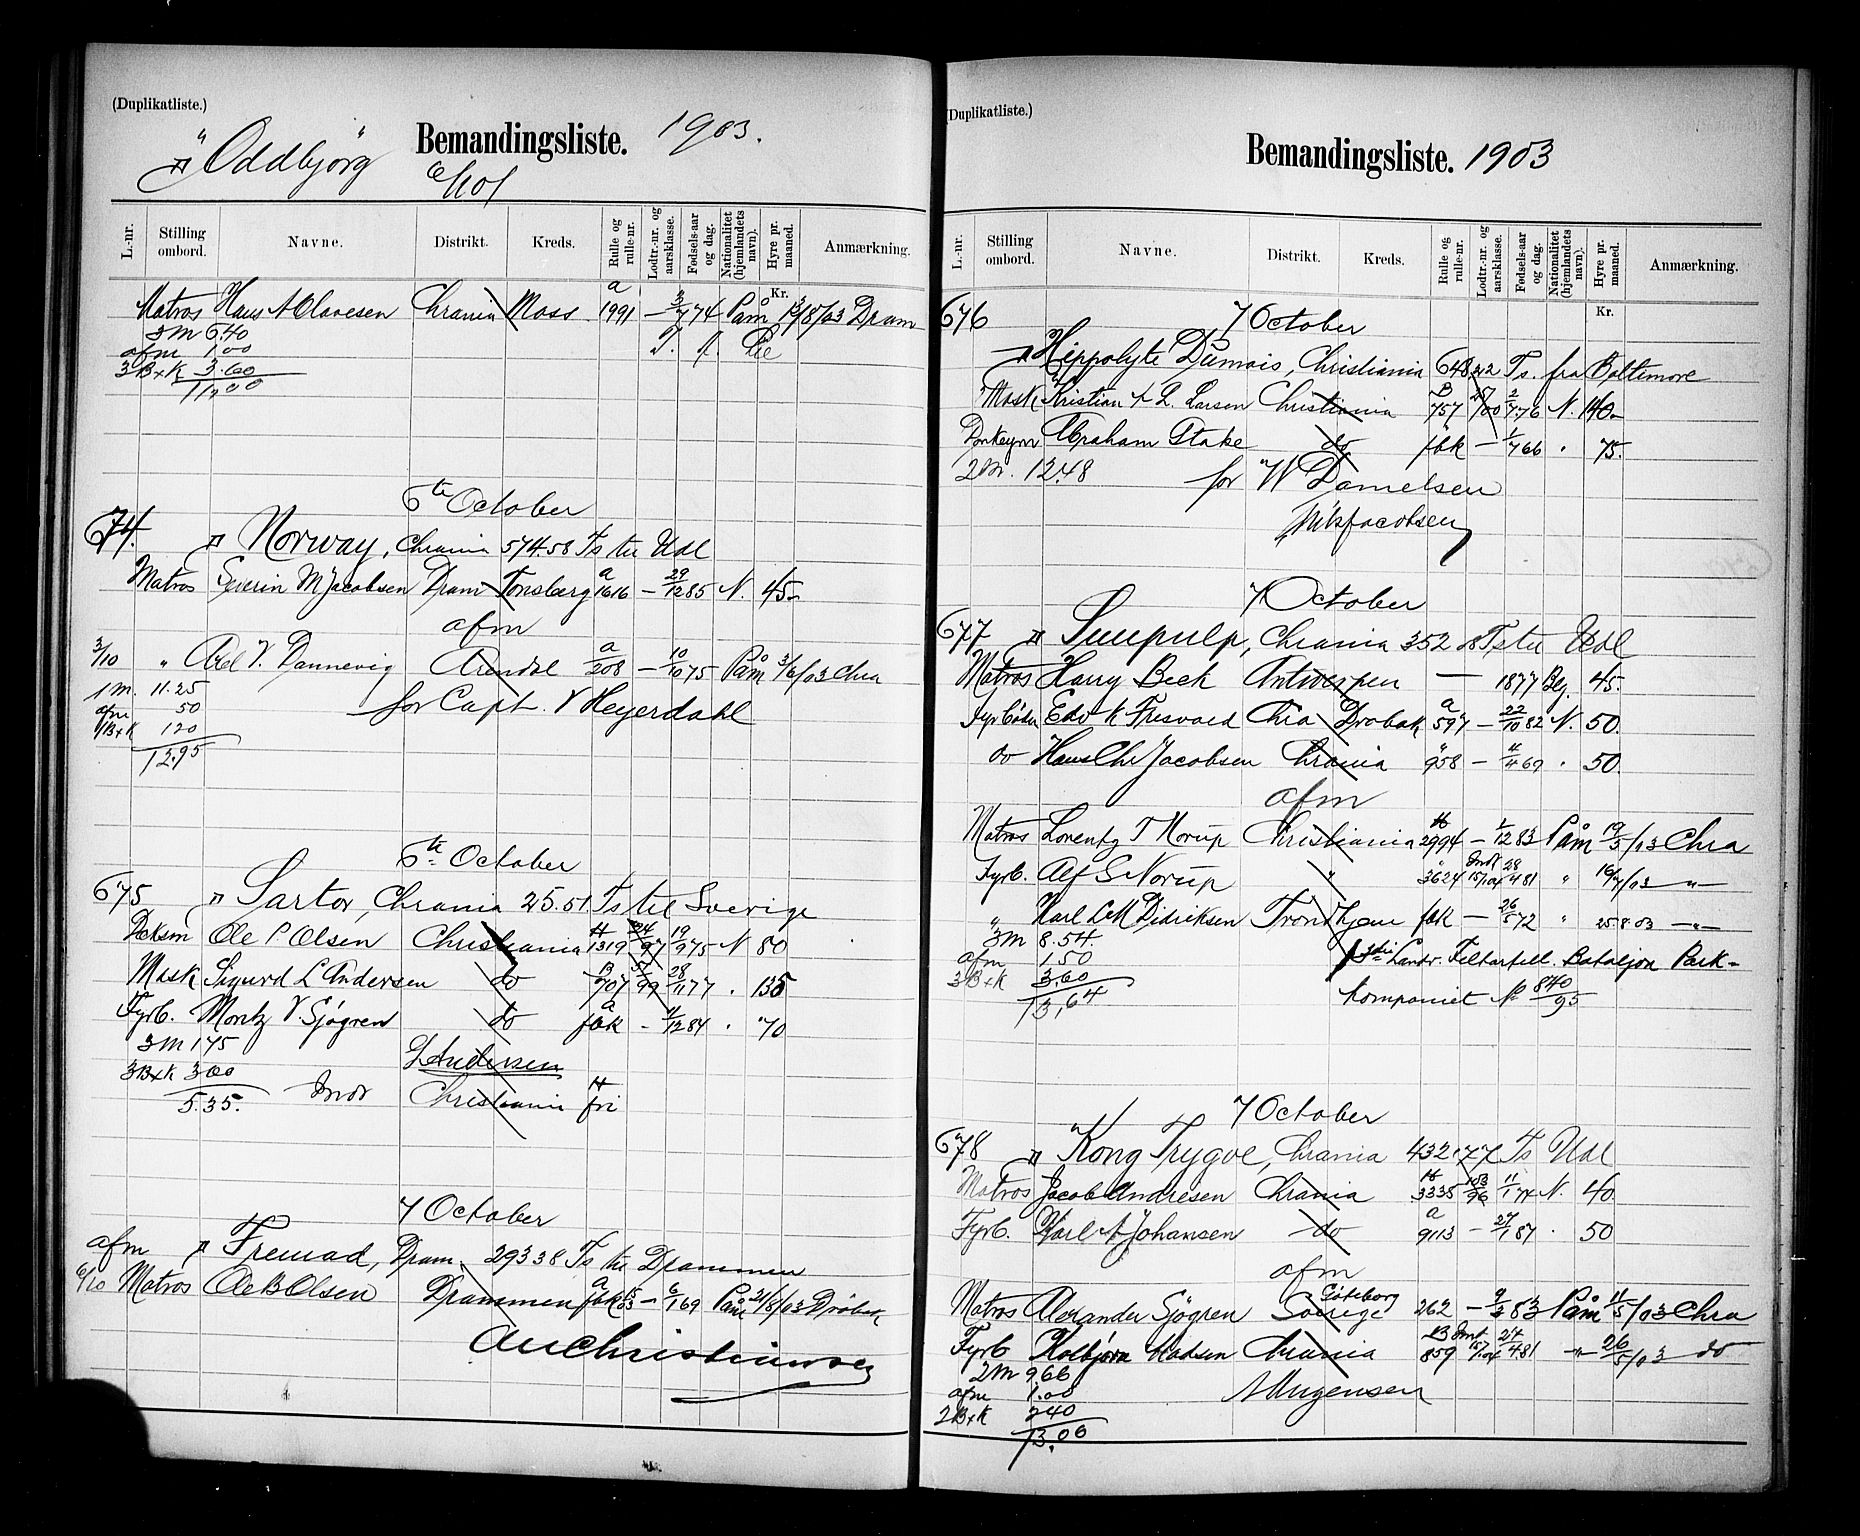 (Duplikatliste.)
"Oddbjørg" Bemandingsliste. 1903.
L.-nr. Stilling ombord. Navne. Distrikt. Kreds. Rulle og rulle-nr. Lodtr.-nr. og aarsklasse. Fødsels-aar og dag. Nationalitet (hjemlandets navn). Hyre pr. maaned. Anmærkning.
Kr.
Matros Hans A Olavesen Chrania Moss a 1991 — 3/7 74 Påm 13/8/03 Dram
3 M 6.40
afm 1.00
3 B+K 3.60
11,00
6te October
674. Norway, Chrania 574.58 Ts til Udl
Matros Severin M Jacobsen Dram Tønsberg a 1616 — 29/12 85 N. 45-
afm
3/10 " Axel V. Dannevig Arendal a 208 — 10/10 75 Påm 3/6/03 Chra
1 M. 11.25
afm 50
1 B+K 120
12.95
for Capt. V Heyerdahl
6te October
675 Sartor, Chrania 25.51 Ts til Sverige
Deksm Ole P Olsen Christiania H 1319 24/97 19/9 75 N 80
Mask Sigurd L Andersen do B 707 51/99 28/11 77 . 135
Fyrb. Moritz V. Sjøgren do a fbk — 4/12 84 . 70
3 M 175
3 B+K 3 00
5.35.
L Andersen
Christiania H fri
7 October
afm Fremad, Dram. 293 38 Ts til Drammen
6/10 Matros Ole B Olsen Drammen a fbk 15/03 — 6/1 69 Påm 21/8/03 Drøbak
A Christiansen
(Duplikatliste.)
Bemandingsliste. 1903
L.-nr. Stilling ombord. Navne. Distrikt. Kreds. Rulle og rulle-nr. Lodtr.-nr. og aarsklasse. Fødsels-aar og dag. Nationalitet (hjemlandets navn). Hyre pr. maaned. Anmærkning.
Kr.
676 7 October
Hippolyte Dumois, Christiania 648 22 Ts. fra Baltimore
Mask Kristian L. Larsen Christiania B 757 27/00 2/7 76 N. 140-
Donkeym Abraham Stake do fbk — 1/7 66 . 75.
2 M. 12.48
for W Danielsen
Nils Jacobsen
7 October
677 Sunpulp, Chrania 352 18 Ts til Udl
Matros Harry Beck Antwerpen — 1877 Belg. 45.
Fyrbøder Edv K Fresvold Chra Drøbak a 597 — 22/10 82 N. 50.
do Hans Chr Jacobsen Chrania " 958 — 4/11 69 . 50.
afm
Matros Lorentz T Norup Christiania H 2994 — 1/12 83 Påm 19/5/03 Chra
Fyrb. Alf S Norup " " 3624 15/1 04 28/4 81 " 16/7/03 — " —
" Karl L M Didriksen Trondhjem fbk — 26/5 72 " 25.8.03 — " —
3 M 8.54.
afm 1,50
3 B+K 3,60
13,64
3die Landv. Feltartill. Bataljon Park-
kompaniet No 840/95
7 October
678 "Kong Trygve, Chrania 432.77 Ts Udl
Matros Jacob Andresen Chrania H 3335 103/96 11/1 74 N. 40
Fyrb. Karl A Johansen do a 9113 — 27/1 87 . 50
afm
Matros Alexander Sjøgren Gøteborg Sverige 262 — 9/3 83 Påm 11/5/03 Chra
Fyrb Kolbjørn Madsen Chrania B 859 15/1 04 24/4 81 — " 26/5/03 do
2 M 9.66
afm 1.00
2 B+K 240
13.00